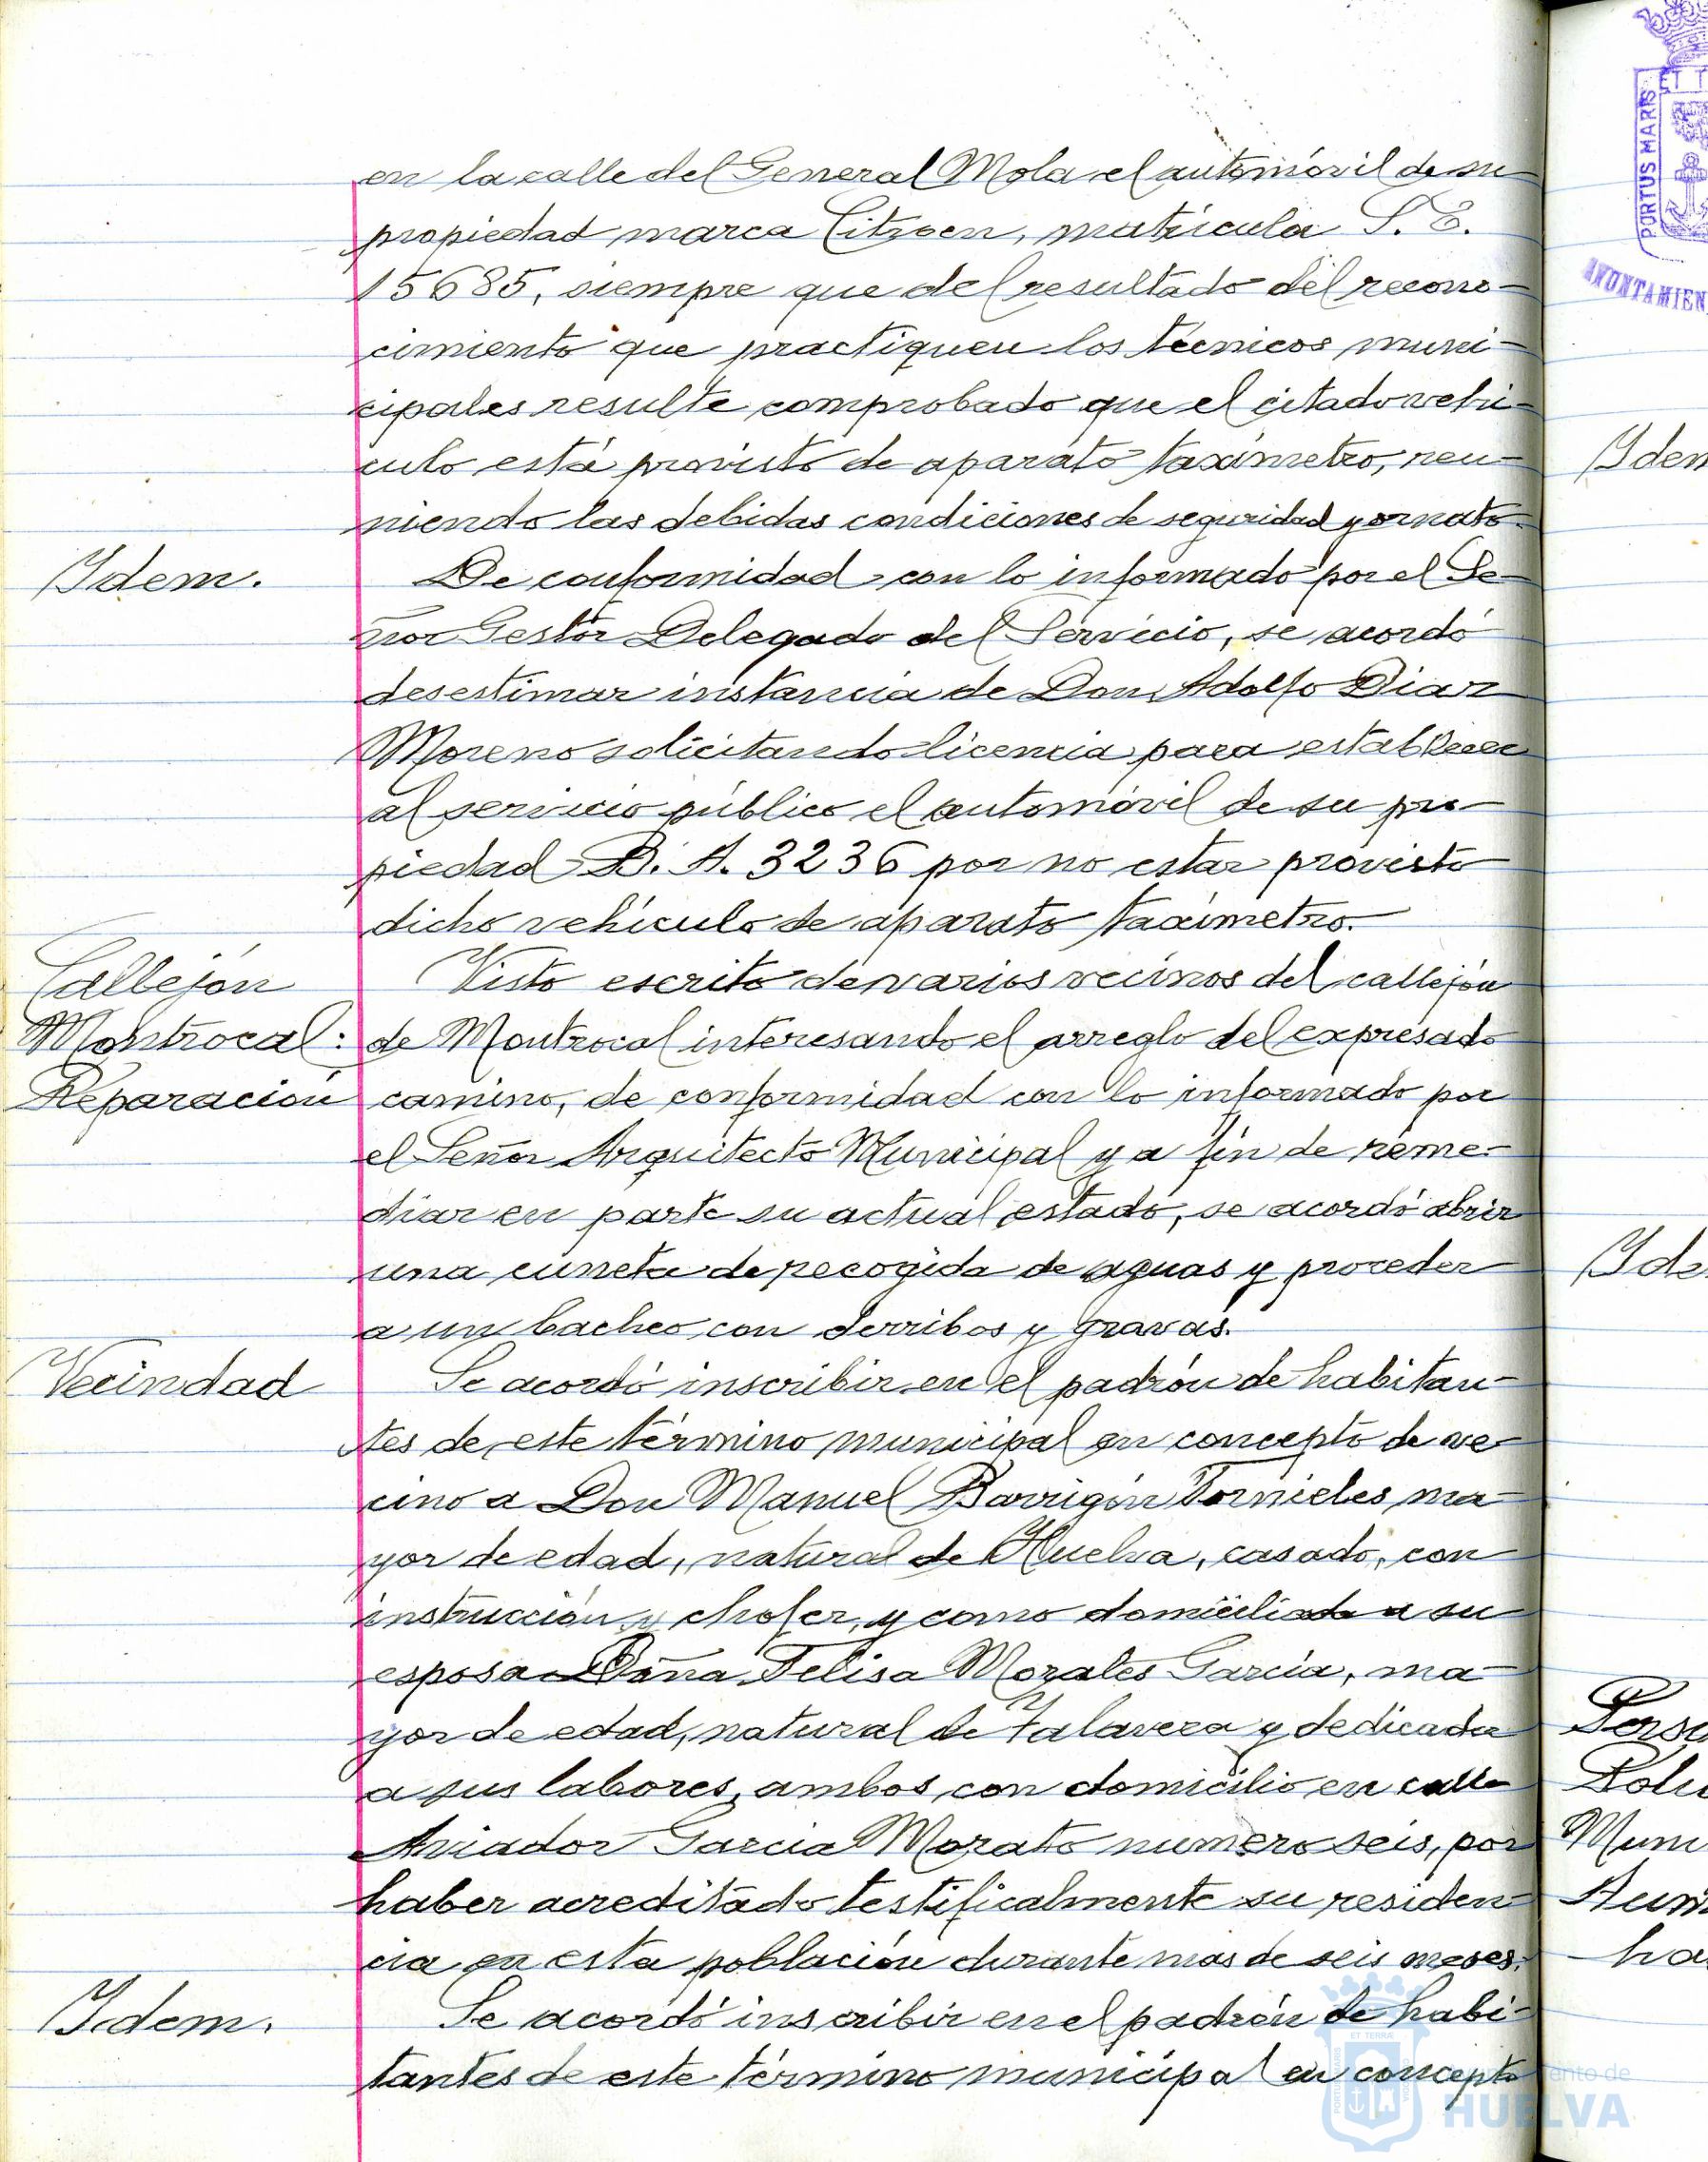 en la calle del General Mola el automóvil de su
propiedad marca Citroen, matrícula S. E.
15685, siempre que del resultado del recono-
cimiento que practiquen los técnicos muni-
cipales resulte comprobado que el citado vehi-
culo está provisto de aparato taxímetro, reu-
niendo las debidas condiciones de seguridad y ornato.
Idem.
De conformidad con lo informado por el Se-
ñor Gestor Delegado del Servicio, se acordó
desestimar instancia de Don Adolfo Diaz
Moreno solicitando licencia para establecer
al servicio público el automóvil de su pro-
piedad B. A. 3236 por no estar provisto
dicho vehículo de aparato taxímetro.
Callejón
Montrocal:
Reparación
Visto escrito de varios vecinos del callejón
de Montrocal interesando el arreglo del expresado
camino, de conformidad con lo informado por
el Señor Arquitecto Municipal y a fin de reme-
diar en parte su actual estado, se acordó abrir
una cuneta de recogida de aguas y proceder
a un bacheo con derribos y gravas.
Vecindad
Se acordó inscribir en el padrón de habitan-
tes de este término municipal en concepto de ve-
cino a Don Manuel Barrigón Tornieles ma-
yor de edad, natural de Huelva, casado, con
instrucción y chofer, y como domiciliada a su
esposa Doña Felisa Morales García, ma-
yor de edad, natural de Talavera y dedicada
a sus labores, ambos con domicilio en calle
Aviador Garcia Morato numero seis, por
haber acreditado testificalmente su residen-
cia en esta población durante mas de seis meses.
Idem.
Se acordó inscribir en el padrón de habi-
tantes de este término municipal en concepto
PORTUS MARIS
ET T
AYUNTAMIEN
Idem
Ide
Perso
Muni
ha
ET TERRÆ
ento de
HUELVA